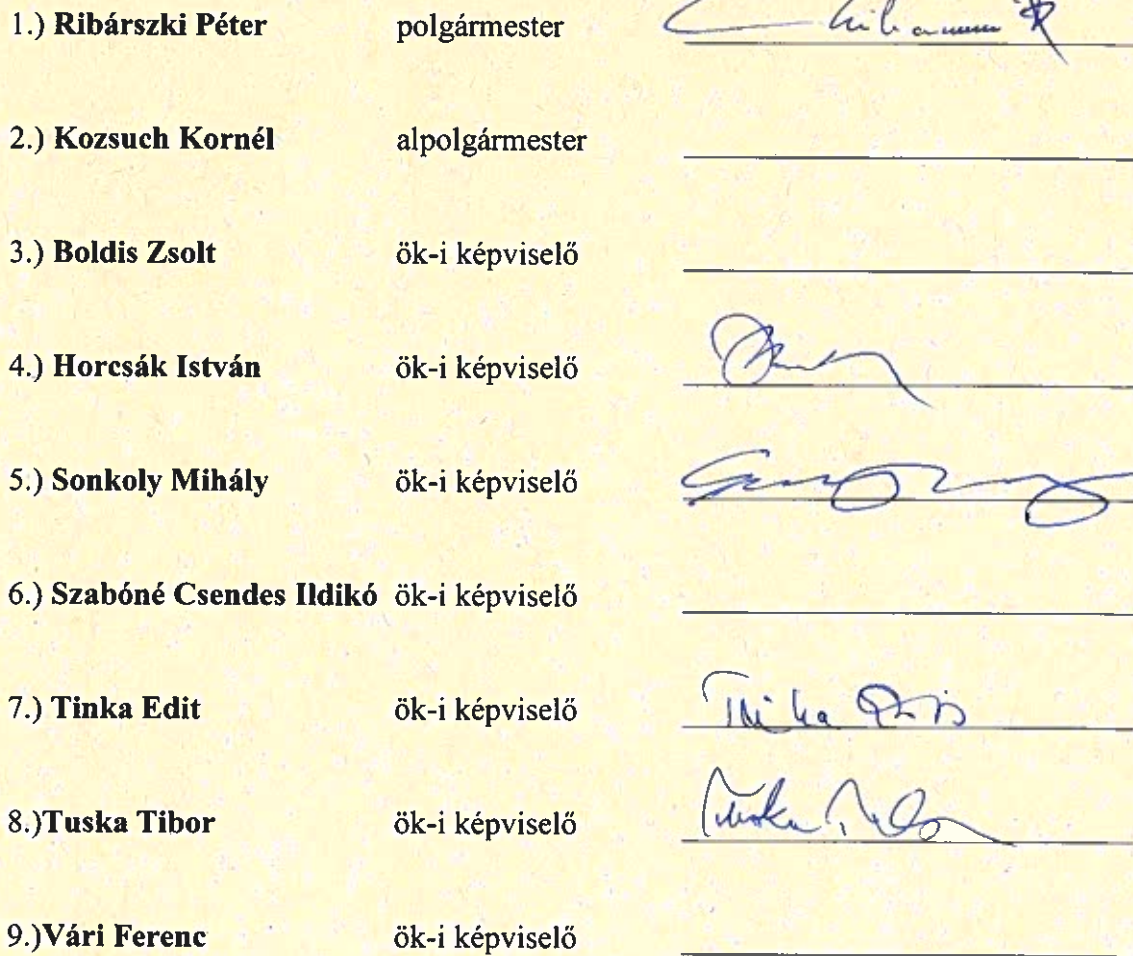 1.) Ribárszki Péter polgármester
2.) Kozsuch Kornél alpolgármester
3.) Boldis Zsolt ök-i képviselő
4.) Horcsák István ök-i képviselő
5.) Sonkoly Mihály ök-i képviselő
6.) Szabóné Csendes Ildikó ök-i képviselő
7.) Tinka Edit ök-i képviselő Tinka Edit
8.)Tuska Tibor ök-i képviselő Tuska Tibor
9.)Vári Ferenc ök-i képviselő